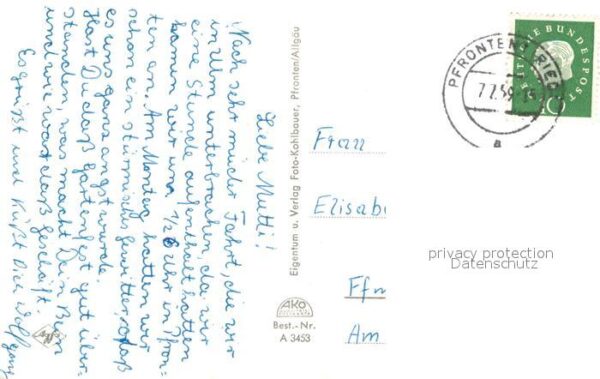 Liebe Mutti!
Nach sehr müder Fahrt, die wir
in Ulm unterbrochen, da wir
eine Stunde Aufenthalt hatten
kamen wir um 1/2 6 Uhr in Pfron=
ten an. Am Montag hatten wir
schon ein stürmisches Gewitter, sodaß
es uns ganz angst wurde.
Hast Du daß Gartenfest gut über=
standen, was macht Dein Bein
und wie war daß Geschäft.
Es grüßt und Küßt Dich Wolfgang
Eigentum u. Verlag Foto-Kohlbauer, Pfronten/Allgäu
AKO
Best.-Nr.
A 3453
DEUTSCHE BUNDESPOST
PFRONTEN-RIED
7.7.59
a
Frau
Elisab
Ffm
Am
privacy protection
Datenschutz